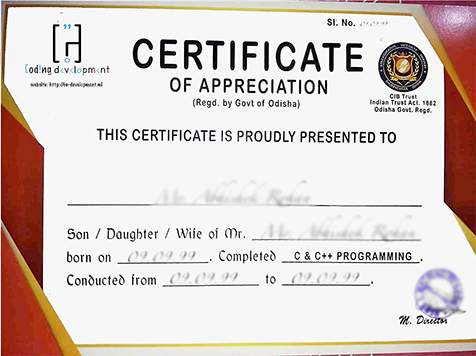 Sl. No. 09.09.99
Coding development
CERTIFICATE
OF APPRECIATION
(Regd. by Govt of Odisha)
CIB Trust
Indian Trust Act. 1882
Odisha Govt. Regd.
THIS CERTIFICATE IS PROUDLY PRESENTED TO
Son / Daughter / Wife of Mr.
born on 09.09.99. Completed C & C++ PROGRAMMING.
Conducted from 09.09.99 to 09.09.99.
M. Director